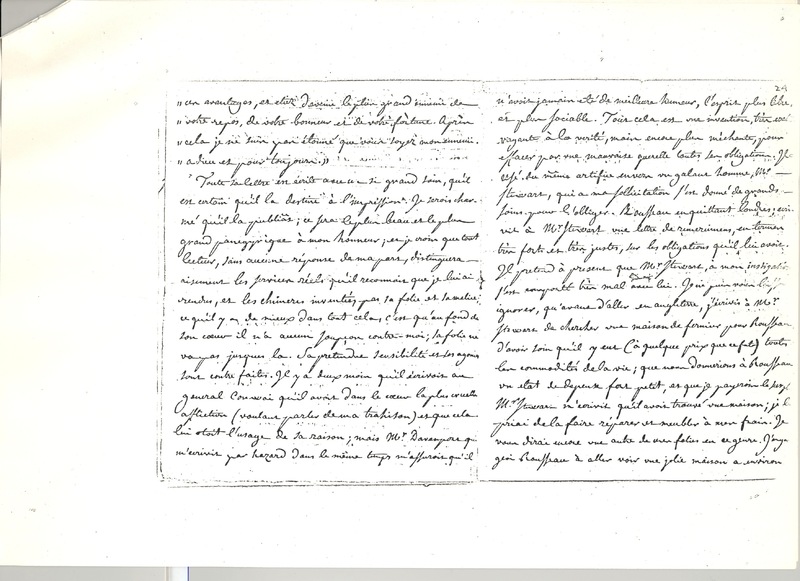 " ces avantages, et etiez devenu le plus grand ennemi de
" votre repos, de votre bonneur et de votre fortune. Après
" cela je ne suis pas étonné que vous soyez mon ennemi.
" adieu et pour toujours. "
Toute sa lettre est écrite avec un si grand soin, qu'il
est certain qu'il la destine à l'impression. Je serois char-
mé qu'il la publiât; ce sera le plus beau et le plus
grand panegyrique à mon honneur; et je crois que tout
lecteur, sans aucune réponse de ma part, distinguera
aisement les services réels qu'il reconnoit que je lui ai
rendus, et les chimeres inventées par sa folie et sa malice
ce qu'il y a de mieux dans tout cela, c'est qu'au fond de
son cœur il n'a aucun soupçon contre moi; sa folie ne
va pas jusques la. Sa pretendue sensibilité et ses agonies
sont contrefaites. Il y a deux mois qu'il écrivoit au
general Conway qu'il avoit dans le cœur la plus cruelle
affliction (voulant parler de ma trahison) et que cela
lui otoit l'usage de sa raison; mais Mr. Davenport qui
m'ecrivit par hazard dans le même temps m'assuroit qu'il
24
n'avoit jamais eté de meilleure humeur, l'esprit plus libre
et plus sociable. Tout cela est une invention, très
à la verité, mais encore plus méchante, pour
effacer par une mauvaise querelle toutes ses obligations. Il
usé du même artifice envers un galant homme, Mr.
Stewart, qui a ma sollicitation s'est donné de grands
soins pour l'obliger. Rousseau en quittant Londres, écri-
vit à Mr. Stewart une lettre de remerciemens, en termes
très forts et très justes, sur les obligations qu'il lui avoit.
Il pretend à present que Mr. Stewart, à mon instigation
s'est comporté très mal avec lui. Je
ignorer, qu'avant d'aller en angleterre, j'écrivis à Mr.
Stewart de chercher une maison de fermier pour Rousseau
d'avoir soin qu'il y eut (à quelque prix que ce fut) toutes
les commodités de la vie; que nous donnerions à Rousseau
un etat de depense fort petit, et que je payerois le
Mr. Stewart m'ecrivit qu'il avoit trouvé une maison; je le
priai de la faire réparer et meubler à mon frais. Je
vous dirai encore une autre de ses folies en ce genre. J'enga
geai Rousseau à aller voir une jolie maison a environ